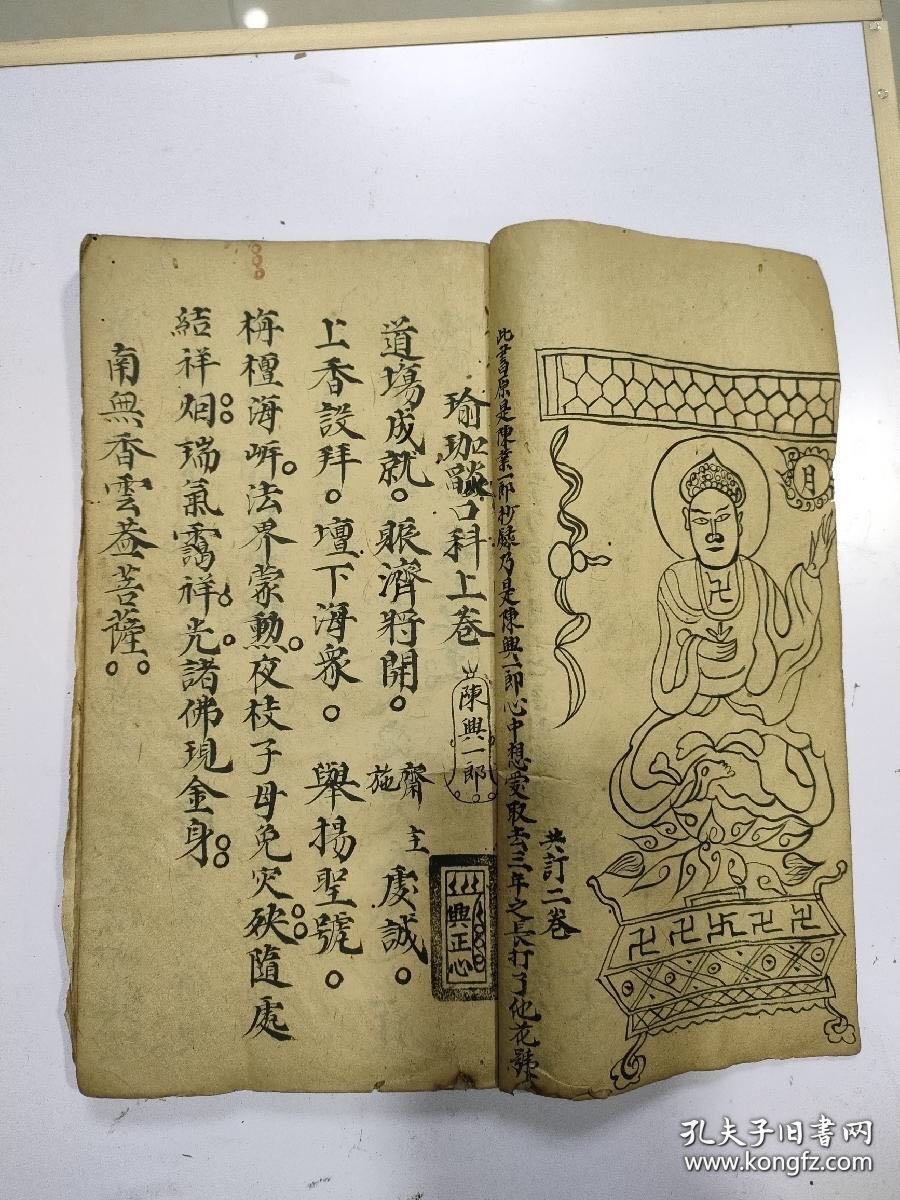 月
卍
卍卍卐卍卍
共訂二卷
此書原是陳業一郎抄錄乃是陳興一郎心中想愛取去三年之長打了他花號
瑜珈燄口科上卷
陳興一郎
興正心
道塲成就。賑濟將開。齋主
施
虔誠。
上香設拜。壇下海衆。舉揚聖號。
栴檀海岍。法界蒙勲。夜枝子母免灾殃隨處
結祥烟。瑞氣靄祥光。諸佛現金身。
南無香雲葢菩薩。
孔夫子旧书网
www.kongfz.com